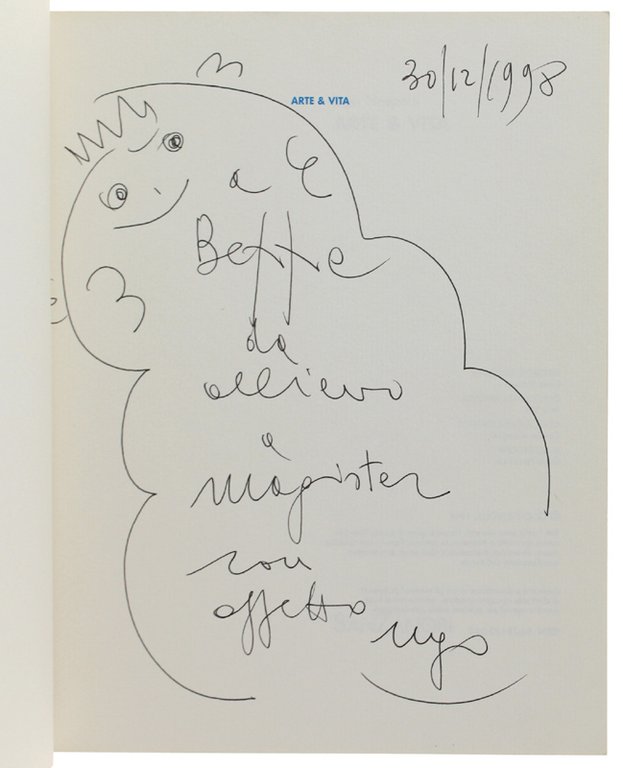 30/12/1998
ARTE & VITA
a
Beppe
da
allievo
a
magister
con
affetto
ugo